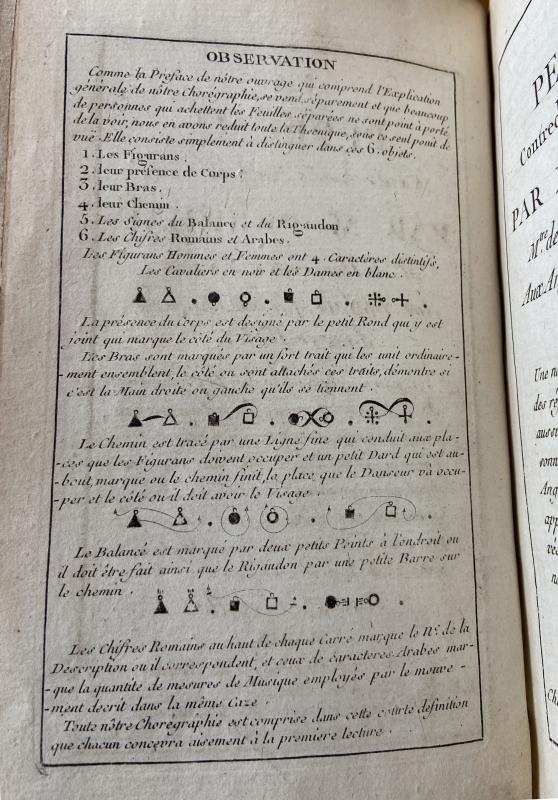 OBSERVATION
Comme la Preface de nôtre ouvrage qui comprend l'Explication
générale de nôtre Chorégraphie, se vend séparement et que beaucoup
de personnes qui achettent les Feuilles séparées ne sont point à porté
de la voir, nous en avons reduit toute la Theorique, sous ce seul point de
vuë. Elle consiste simplement à distinguer dans ces 6. objets.
1. Les Figurans.
2. leur présence de Corps.
3. leur Bras.
4. leur Chemin.
5. Les Signes du Balancé et du Rigaudon.
6. Les Chifres Romains et Arabes.
Les Figurans Hommes et Femmes ont 4. Caractères distintifs,
Les Cavaliers en noir et les Dames en blanc.
La présence du Corps est designé par le petit Rond qui y est
joint qui marque le côté du Visage.
Les Bras sont marqués par un fort trait qui les unit ordinaire-
-ment ensemblent, le côté ou sont attachés ces traits, démontre si
c'est la Main droite ou gauche qu'ils se tiennent.
Le Chemin est tracé par une Ligne fine qui conduit aux pla-
-ces que les Figurans doivent occuper et un petit Dard qui est au-
-bout, marque ou le chemin finit, la place que le Danseur và occu-
-per et le côté ou il doit avoir le Visage.
Le Balancé est marqué par deux petits Points à l'endroit ou
il doit être fait ainsi que le Rigaudon par une petite Barre sur
le chemin.
Les Chifres Romains au haut de chaque Carré marque le No. de la
Description ou il correspondent, et ceux de caractères Arabes mar-
-que la quantite de mesures de Musique employés par le mouve-
-ment decrit dans la même Caze.
Toute nôtre Chorégraphie est comprise dans cette courte definition
que chacun concevra aisement à la premiere lecture.
Contre
PAR
Mre. de
Aux
Une
des